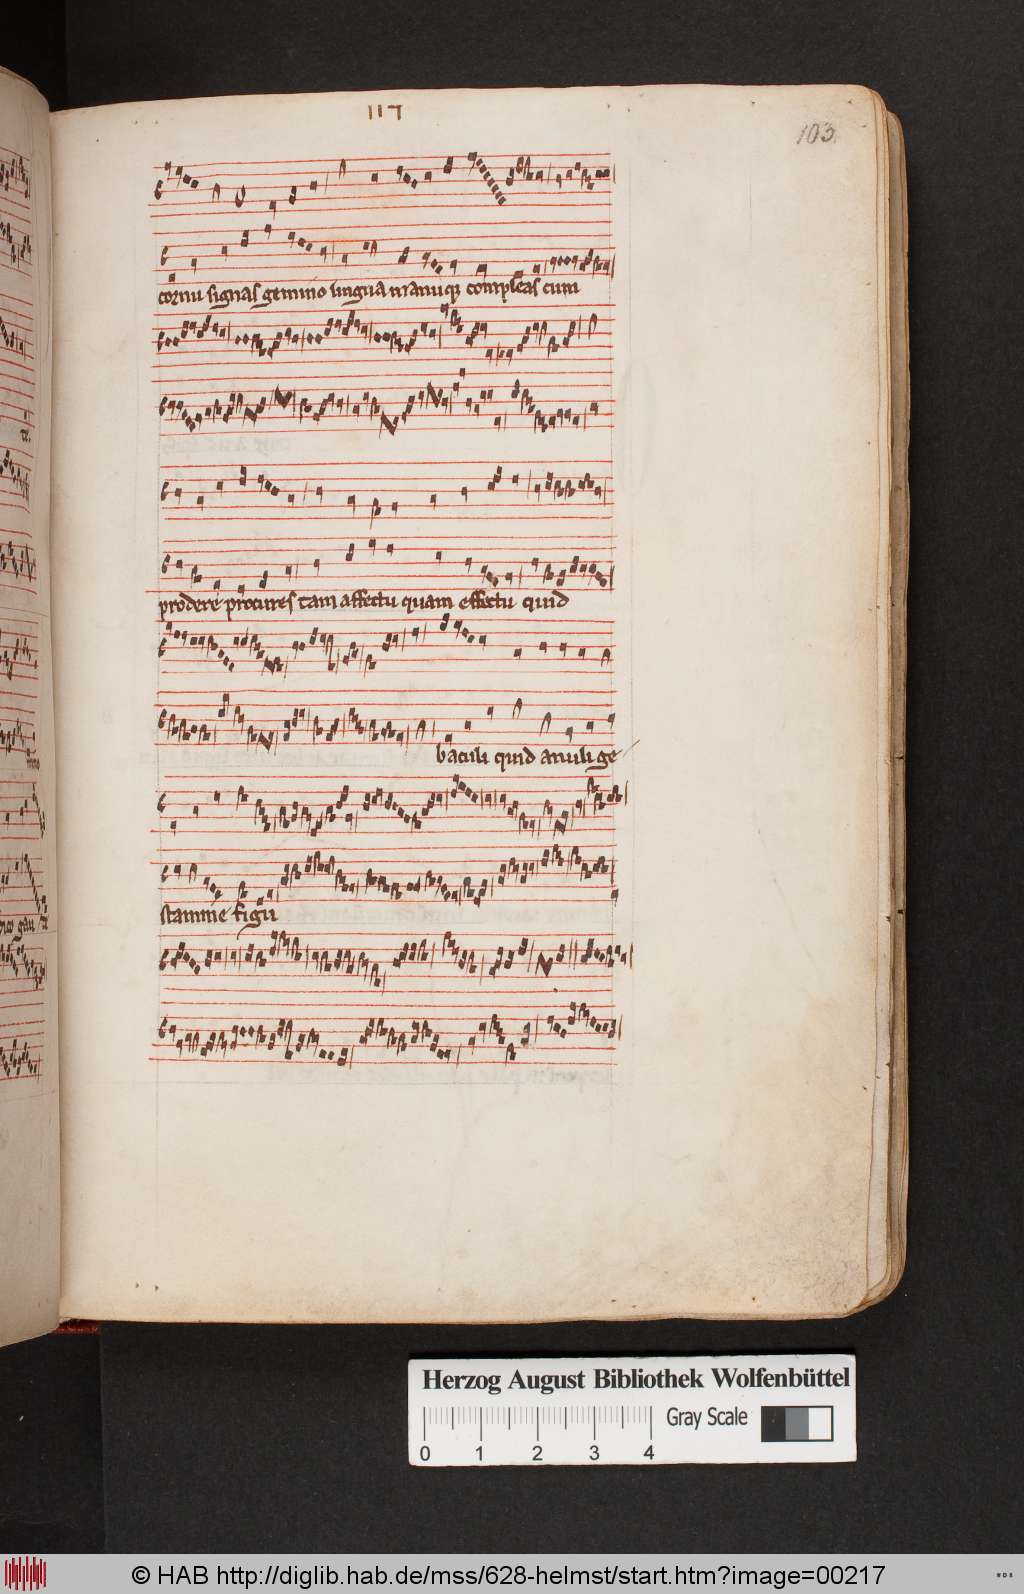 117
103
cornu signas gemino lingua manuq; compleas cum
prodere procures tam affectu quam effectu quid
baculi quid anuli ge
stamine figu
Herzog August Bibliothek Wolfenbüttel
Gray Scale
0 1 2 3 4
© HAB http://diglib.hab.de/mss/628-helmst/start.htm?image=00217